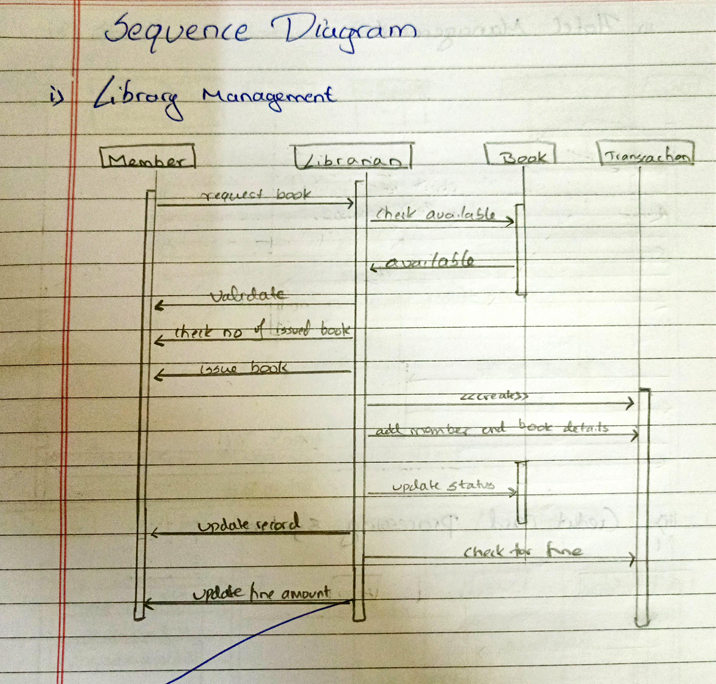 Sequence Diagram
i) Library Management
Member Librarian Book Transaction
request book
check available
available
validate
check no of issued book
issue book
<<create>>
add member and book details
update status
update record
check for fine
update fine amount